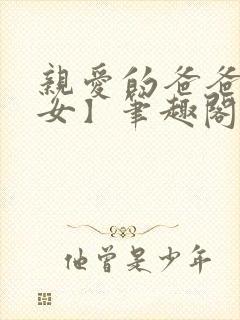 親愛的爸爸
女】筆趣閣
他曾是少年